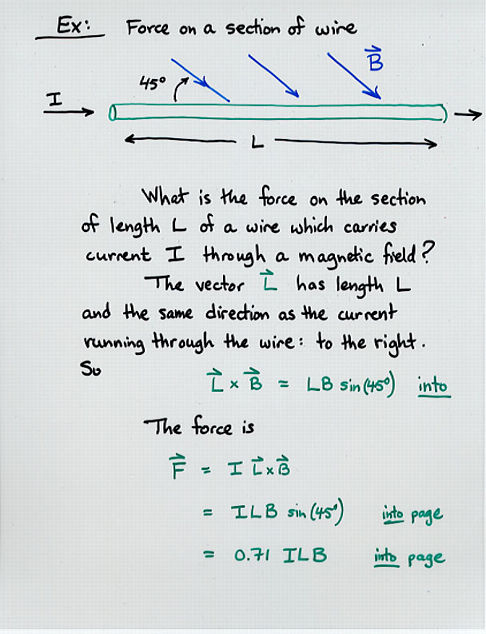 Ex: Force on a section of wire
B
45°
I
L
What is the force on the section
of length L of a wire which carries
current I through a magnetic field?
The vector L⃗ has length L
and the same direction as the current
running through the wire: to the right.
So
L⃗ × B⃗ = LB sin(45°) into
The force is
F⃗ = I L⃗×B⃗
= ILB sin(45°) into page
= 0.71 ILB into page